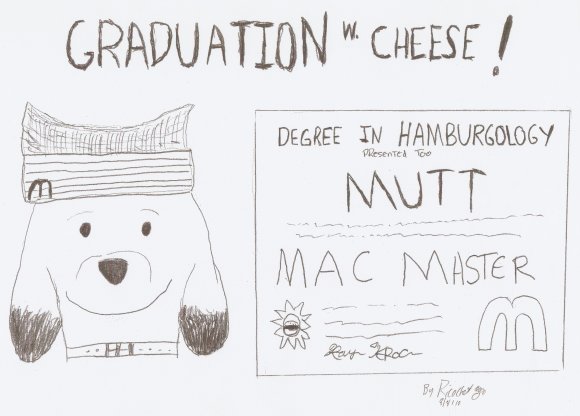 GRADUATION W. CHEESE!
DEGREE IN HAMBURGOLOGY
PRESENTED TOO
MUTT
MAC MASTER
By Ricochet